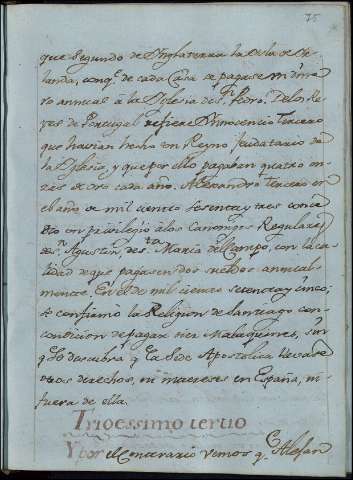 75
que Segundo de Ynglaterra la Ysla de Yr-
landa, conq.e de cada Casa se pagase un dine-
ro annual à la Yglesia de S.n Pedro. Delos Re-
yes de Portugal refiere Ynnocencio Tercero
que havian hecho su Reyno feudatario de
la Yglesia, y que por ello pagaban quatro on-
zas de oro cada año. Alexandro Tercero en
el año de mil ciento sesenta y tres conce-
dio un privilegio à los Canonigos Reglares
de S.n Agustin, de S.ta Maria del Campo, con la ca-
lidad de que pagasen dos sueldos annual-
mente. En el de mil ciento setenta y cinco,
se confirmo la Religion de Santiago con
condicion de pagar diez Malaquines, sin
q.e se descubra q.e la Sede Apostolica llevase
otros derechos, ni intereses en España, ni
fuera de ella.
Trigessimo tertio
Y por el Contrario vemos q.e Alexan